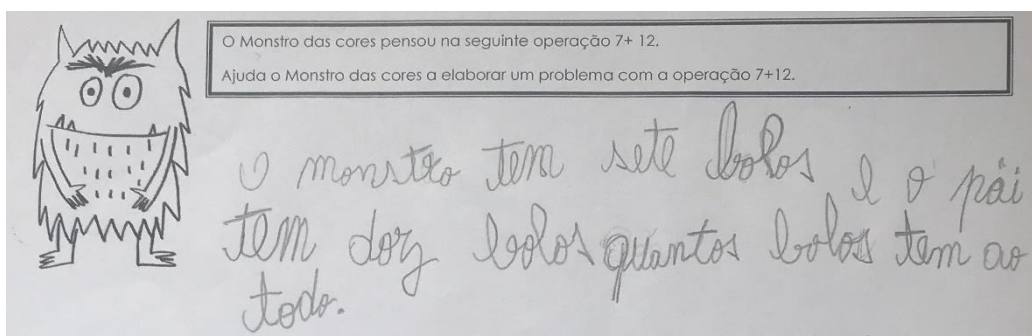 O Monstro das cores pensou na seguinte operação 7+ 12.
Ajuda o Monstro das cores a elaborar um problema com a operação 7+12.
O monstro tem sete bolos e o pái
tem doz bolos quantos bolos tem ao
todo.